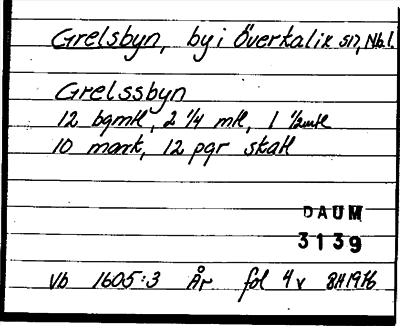 Grelsbyn, by i Överkalix sn, Nbl.
Grelssbyn
12 bgmkl, 2 1/4 mkl, 1 1/2 mkl
10 mark, 12 pgr skatt
DAUM
3139
Vb 1605:3 År fol 4v BH1976